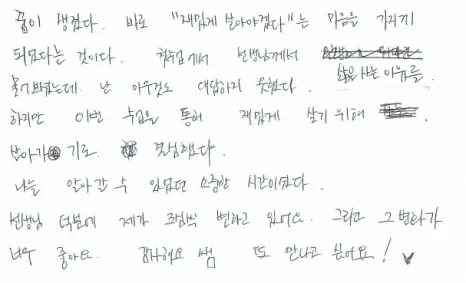 꿈이 생겼다. 바로 "재밌게 살아야겠다"는 마음을 가지게
되었다는 것이다. 첫수업에서 선생님께서
물어봤는데 난 아무것도 대답하지 못했다. 삶을 사는 이유를.
하지만 이번 수업을 통해 재밌게 살기 위해
살아가기로 결심했다.
나를 알아간 수 있었던 소중한 시간이였다.
선생님 덕분에 제가 조금씩 변하고 있어요. 그리고 그 변화가
너무 좋아요. 감사해요 쌤 또 만나고 싶어요!